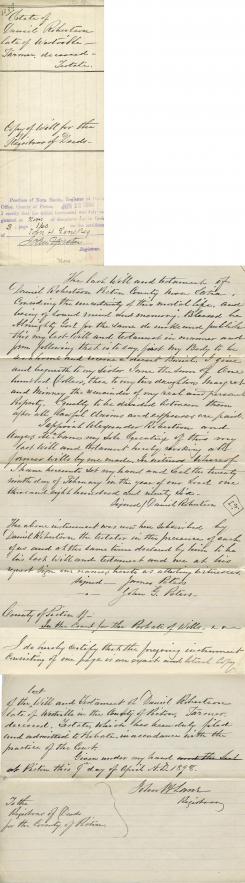 Estate of
Daniel Robertson
late of Westville
Farmer, deceased
Testate.
Copy of Will for the
Registrar of Deeds
Province of Nova Scotia,
Office, County of Pictou,
Registrar.
The last Will and testament of
Daniel Robertson Pictou County Nova Scotia.
Considering the uncertainty of this mortal life, and
being of sound mind and memory. Blessed be
Almighty God for the same do make and publish
this my last Will and testament in manner and
form following that is to say first My Body to be
and receive a decent Burial. I give
and bequeath to my sister Jane the sum of One
hundred Dollars, then to my two daughters Margret
and the remainder of my real and personal
Property Equally to be divided between them
after all lawful Claims and expenses are paid.
I appoint Alexander Robertson and
Angus my Sole of this my
last Will and testament hereby revoking all
former Wills by me made. In witness whereof
I have hereunto set my hand and Seal the twenty
ninth day of February in the year of our Lord one
thousand eight hundred and ninety six.
Signed/ Daniel Robertson
The above instrument was now here subscribed by
Daniel Robertson, the testator in the presence of each
of us and at the same time declared by him to be
his last Will and testament and we at his
request sign our names hereto as attesting witnesses
Signed James
John G.
County of Pictou SS.
In the Court for the Probate of Wills,
I do hereby certify that the foregoing instrument
Consisting of one page is an exact and literal copy
of the Will and Testament of Daniel Robertson
late of Westville in the County of Pictou, Farmer
deceased, Testate, which has been duly filed
and admitted to Probate, in accordance with the
practice of the Court.
Given under my hand
at Pictou this 9th day of April A.D. 1898.
John
Registrar
To the
Registrar of Deeds
for the County of Pictou